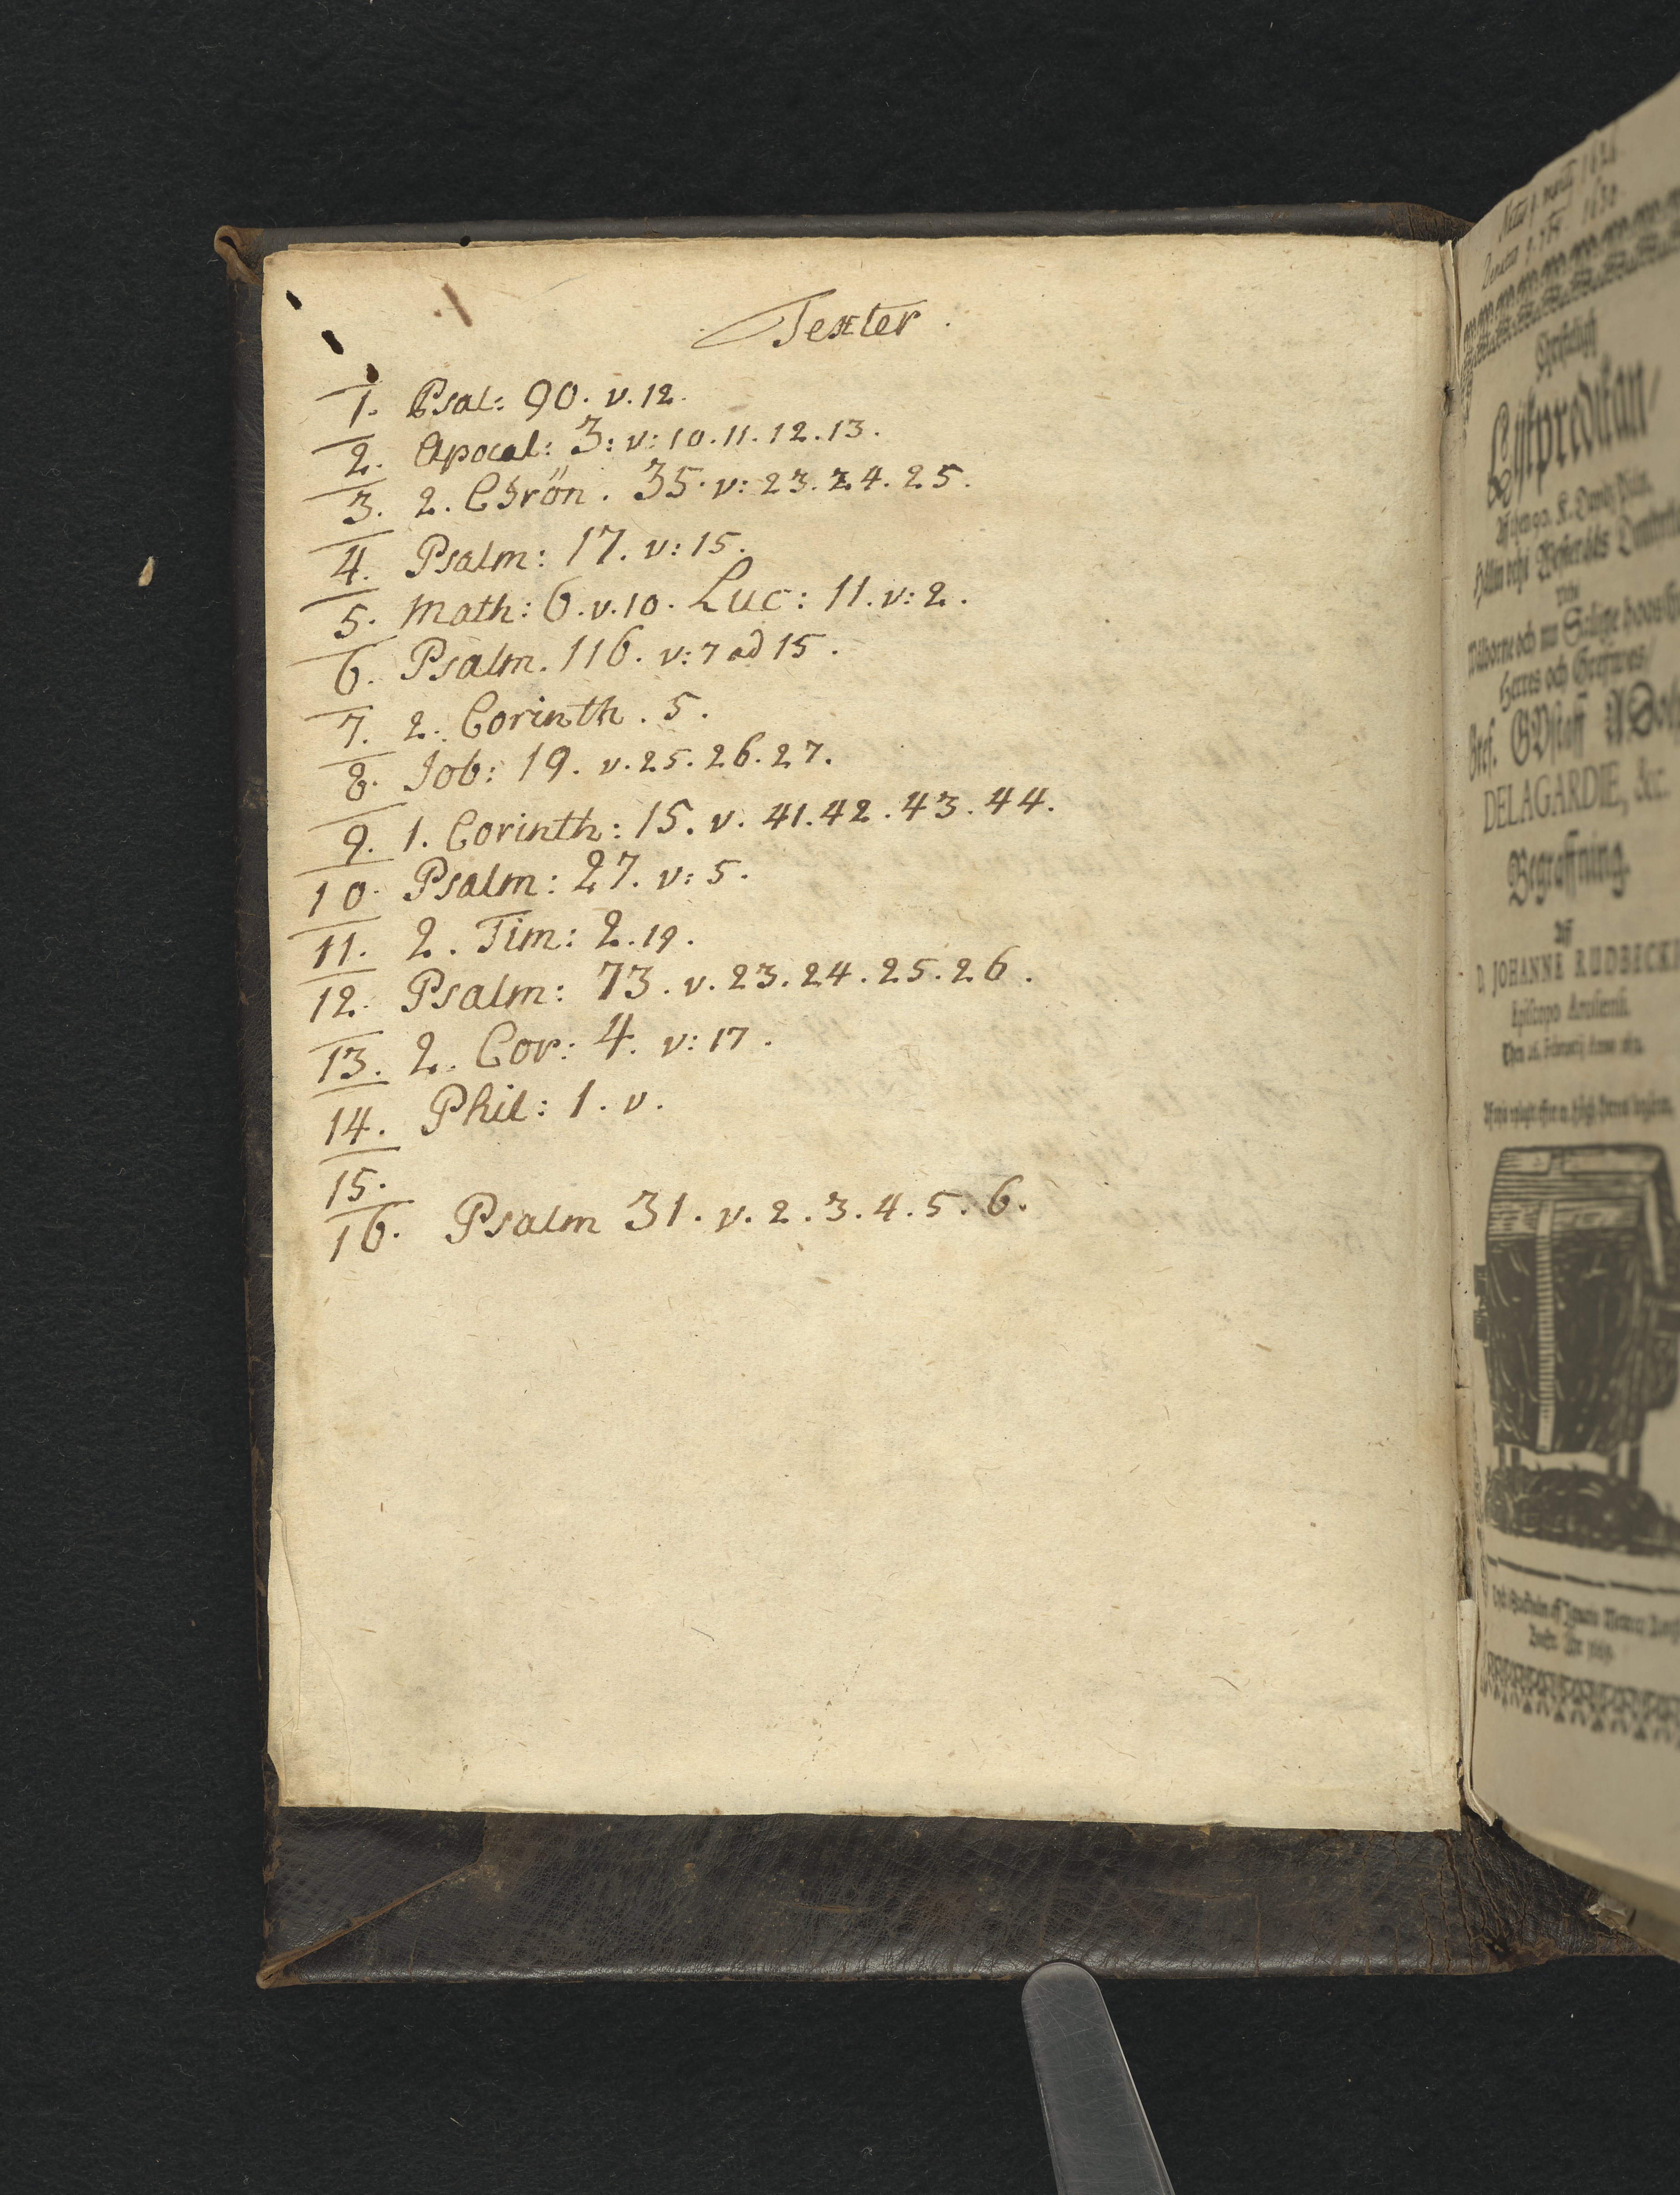 Texter.
1. Psal: 90. v. 12.
2. Apocal: 3: v: 10. 11. 12. 13.
3. 2. Chrön. 35. v: 23. 24. 25.
4. Psalm: 17. v: 15.
5. Math: 6. v. 10. Luc: 11. v: 2.
6. Psalm. 116. v: 7 ad 15.
7. 2. Corinth. 5.
8. Job: 19. v. 25. 26. 27.
9. 1. Corinth: 15. v. 41. 42. 43. 44.
10. Psalm: 27. v: 5.
11. 2. Tim: 2. 19.
12. Psalm: 73. v. 23. 24. 25. 26.
13. 2. Cor: 4. v: 17.
14. Phil: 1. v.
15.
16. Psalm 31. v. 2. 3. 4. 5. 6.
1626
1630
Christeligh
Lijkpredikan/
Herres och Grefwes/
Gref. GVstaff
DELAGARDIE, &c.
Begraffning.
Aff
D. JOHANNE RUDBECKI
Episcopo